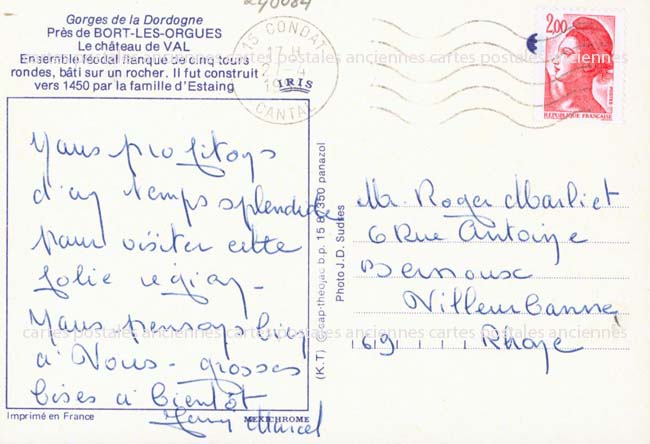 240084
Gorges de la Dordogne
Près de BORT-LES-ORGUES
Le château de VAL
Ensemble féodal flanqué de cinq tours
rondes, bâti sur un rocher. Il fut construit
vers 1450 par la famille d'Estaing
IRIS
15 CONDAT
17 H
CANTAL
2,00
REPUBLIQUE FRANÇAISE
cartes postales anciennes cartes postales anciennes cartes postales anciennes
Nous profitons
d'un temps splendide
pour visiter cette
jolie région-
Nous pensons bien
à Vous - grosses
bises à bientôt
Marcel
Mr. Roger Marliet
6 Rue Antoine
Bernoux
Villeurbanne
69 Rhone
(K.T) © cap-théojac b.p. 15 87350 panazol
Photo J.D. Sudres
cartes postales anciennes cartes postales anciennes cartes postales anciennes
Imprimé en France
MEXICHROME